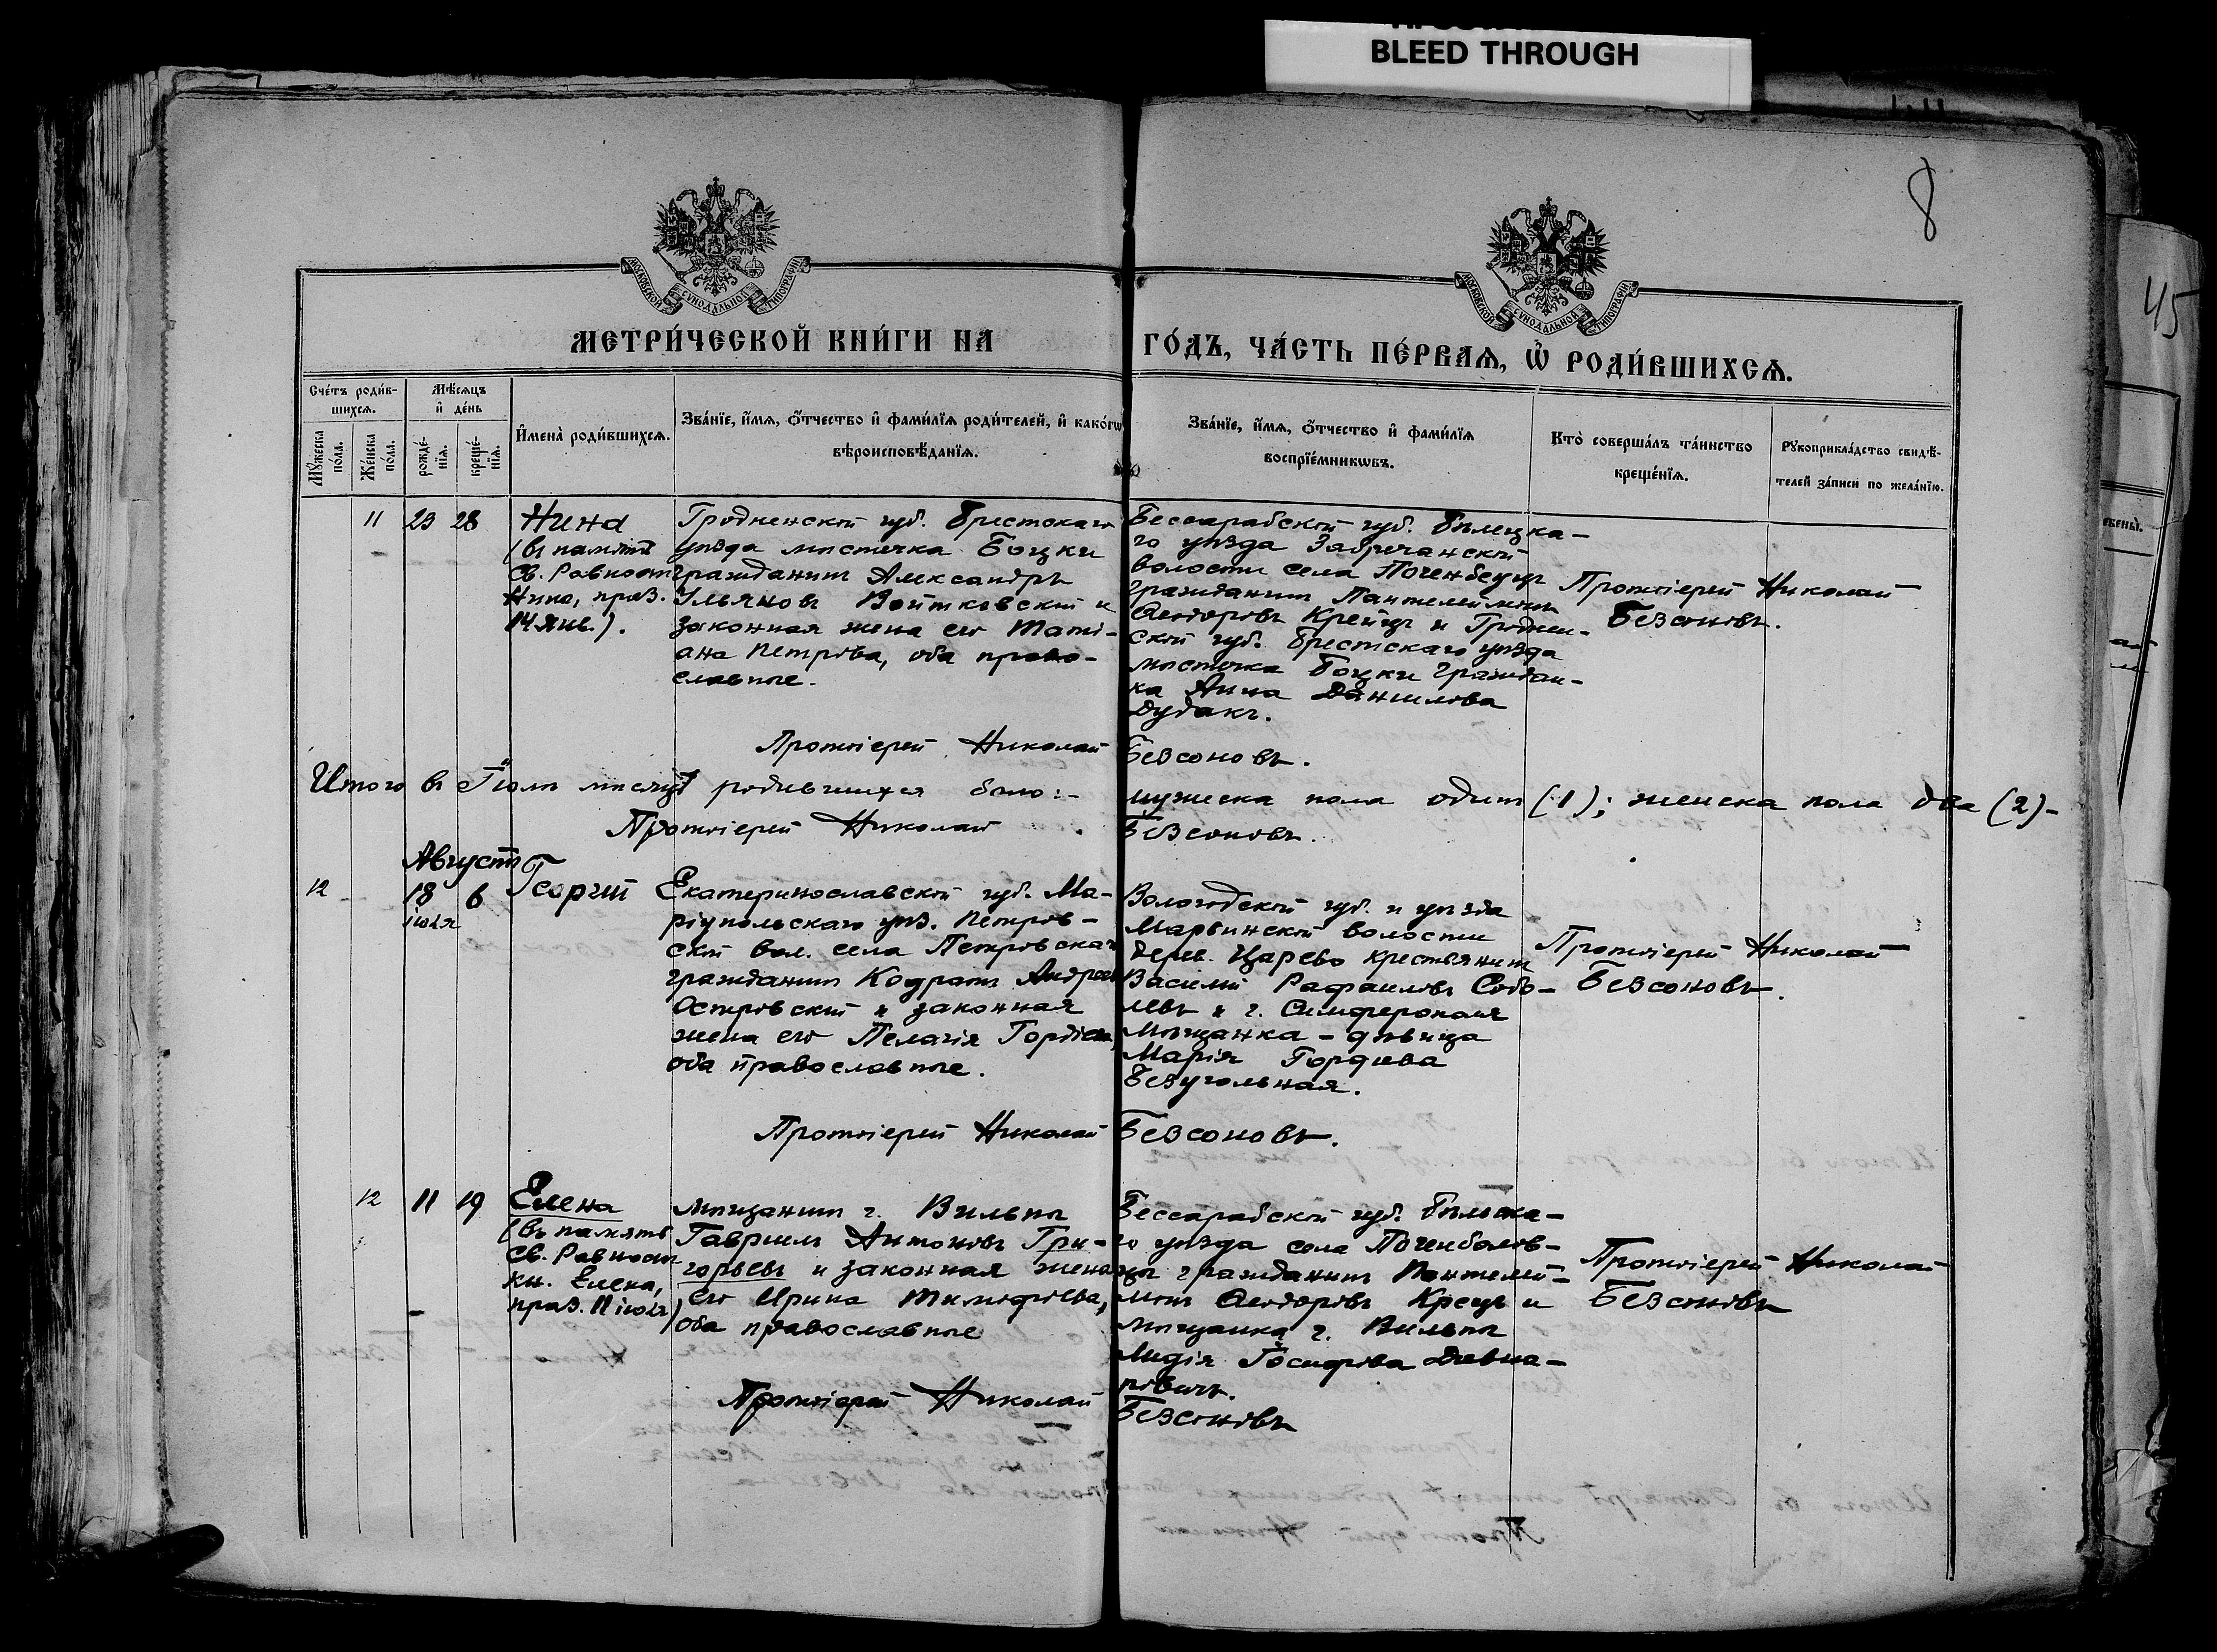 BLEED THROUGH
8
45
МОСКОВСКОЙ СѴНОДАЛЬНОЙ ТИПОГРАФІИ
МОСКОВСКОЙ СѴНОДАЛЬНОЙ ТИПОГРАФІИ
МЕТРИ́ЧЕСКОЙ КНИ́ГИ НА ГО́ДЪ, ЧА́СТЬ ПЕ́РВАѦ, Ѡ҆ РОДИ́ВШИХСѦ.
Сче́тъ роди́в-
шихсѧ.
Мꙋ́жеска по́ла.
Же́нска по́ла.
Мѣ́сѧцъ
и҆ де́нь
рожде́-
нїѧ.
креще́-
нїѧ.
И҆мена̀ роди́вшихсѧ.
Зва́нїе, и҆́мѧ, ѻ҆́тчество и҆ фами́лїѧ роди́телей, и҆ како́гѡ
вѣроисповѣ́данїѧ.
Зва́нїе, и҆́мѧ, ѻ҆́тчество и҆ фами́лїѧ
воспрїе́мникѡвъ.
Кто̀ соверша́лъ та́инство
креще́нїѧ.
Рꙋкоприкла́дство свидѣ́-
телей за́писи по жела́нїю.
11 23 28
Нина
(въ память
св. Равноап
Нина, праз.
14 янв.).
Гродненской губ. Брестскаго
уѣзда мѣстечка Боцки
гражданинъ Александръ
Ульяновъ Войтковскій и
законная жена его Тати-
ана Петрова, оба право-
славные.
Бессарабской губ. Бѣлецка-
го уѣзда Забричанской
волости села
гражданинъ Пантелеймонъ
Ѳеодоровъ Крейцъ и Гроднен-
ской губ. Брестскаго уѣзда
мѣстечка Боцки граждан-
ка Анна Данилова
Дудакъ.
Протоіерей Николай
Безсоновъ.
Протоіерей Николай Безсоновъ.
Итого въ Іюлѣ мѣсяцѣ родившихся было:- мужеска пола одинъ (1); женска пола два (2)-
Протоіерей Николай Безсоновъ.
Августъ
12 18 6
іюля
Георгій
Екатеринославской губ. Ма-
ріупольскаго уѣз. Петров-
ской вол. села Петровскаго
гражданинъ Кодратъ Андреевъ
Островскій и законная
жена его Пелагія Гордіева,
оба православные.
Вологодской губ. и уѣзда
Марьинской волости
дерев. Царево крестьянинъ
Василій Рафаиловъ Собо-
левъ и г. Симферополя
мѣщанка - дѣвица
Марія Гордіева
Безугольная.
Протоіерей Николай
Безсоновъ.
Протоіерей Николай Безсоновъ.
12 11 19
Елена
(въ память
св. Равноап
кн. Елена,
праз. 11 іюля)
мѣщанинъ г. Вильны
Гавріилъ Антоновъ Гри-
горьевъ и законная жена
его Ирина Тимофѣева,
оба православные
Бессарабской губ. Бѣлецка-
го уѣзда села
гражданинъ Пантелей-
монъ Ѳеодоровъ Крецъ и
мѣщанка г. Вильны
Лидія Іосифова
Протоіерей Николай
Безсоновъ
Протоіерей Николай Безсоновъ